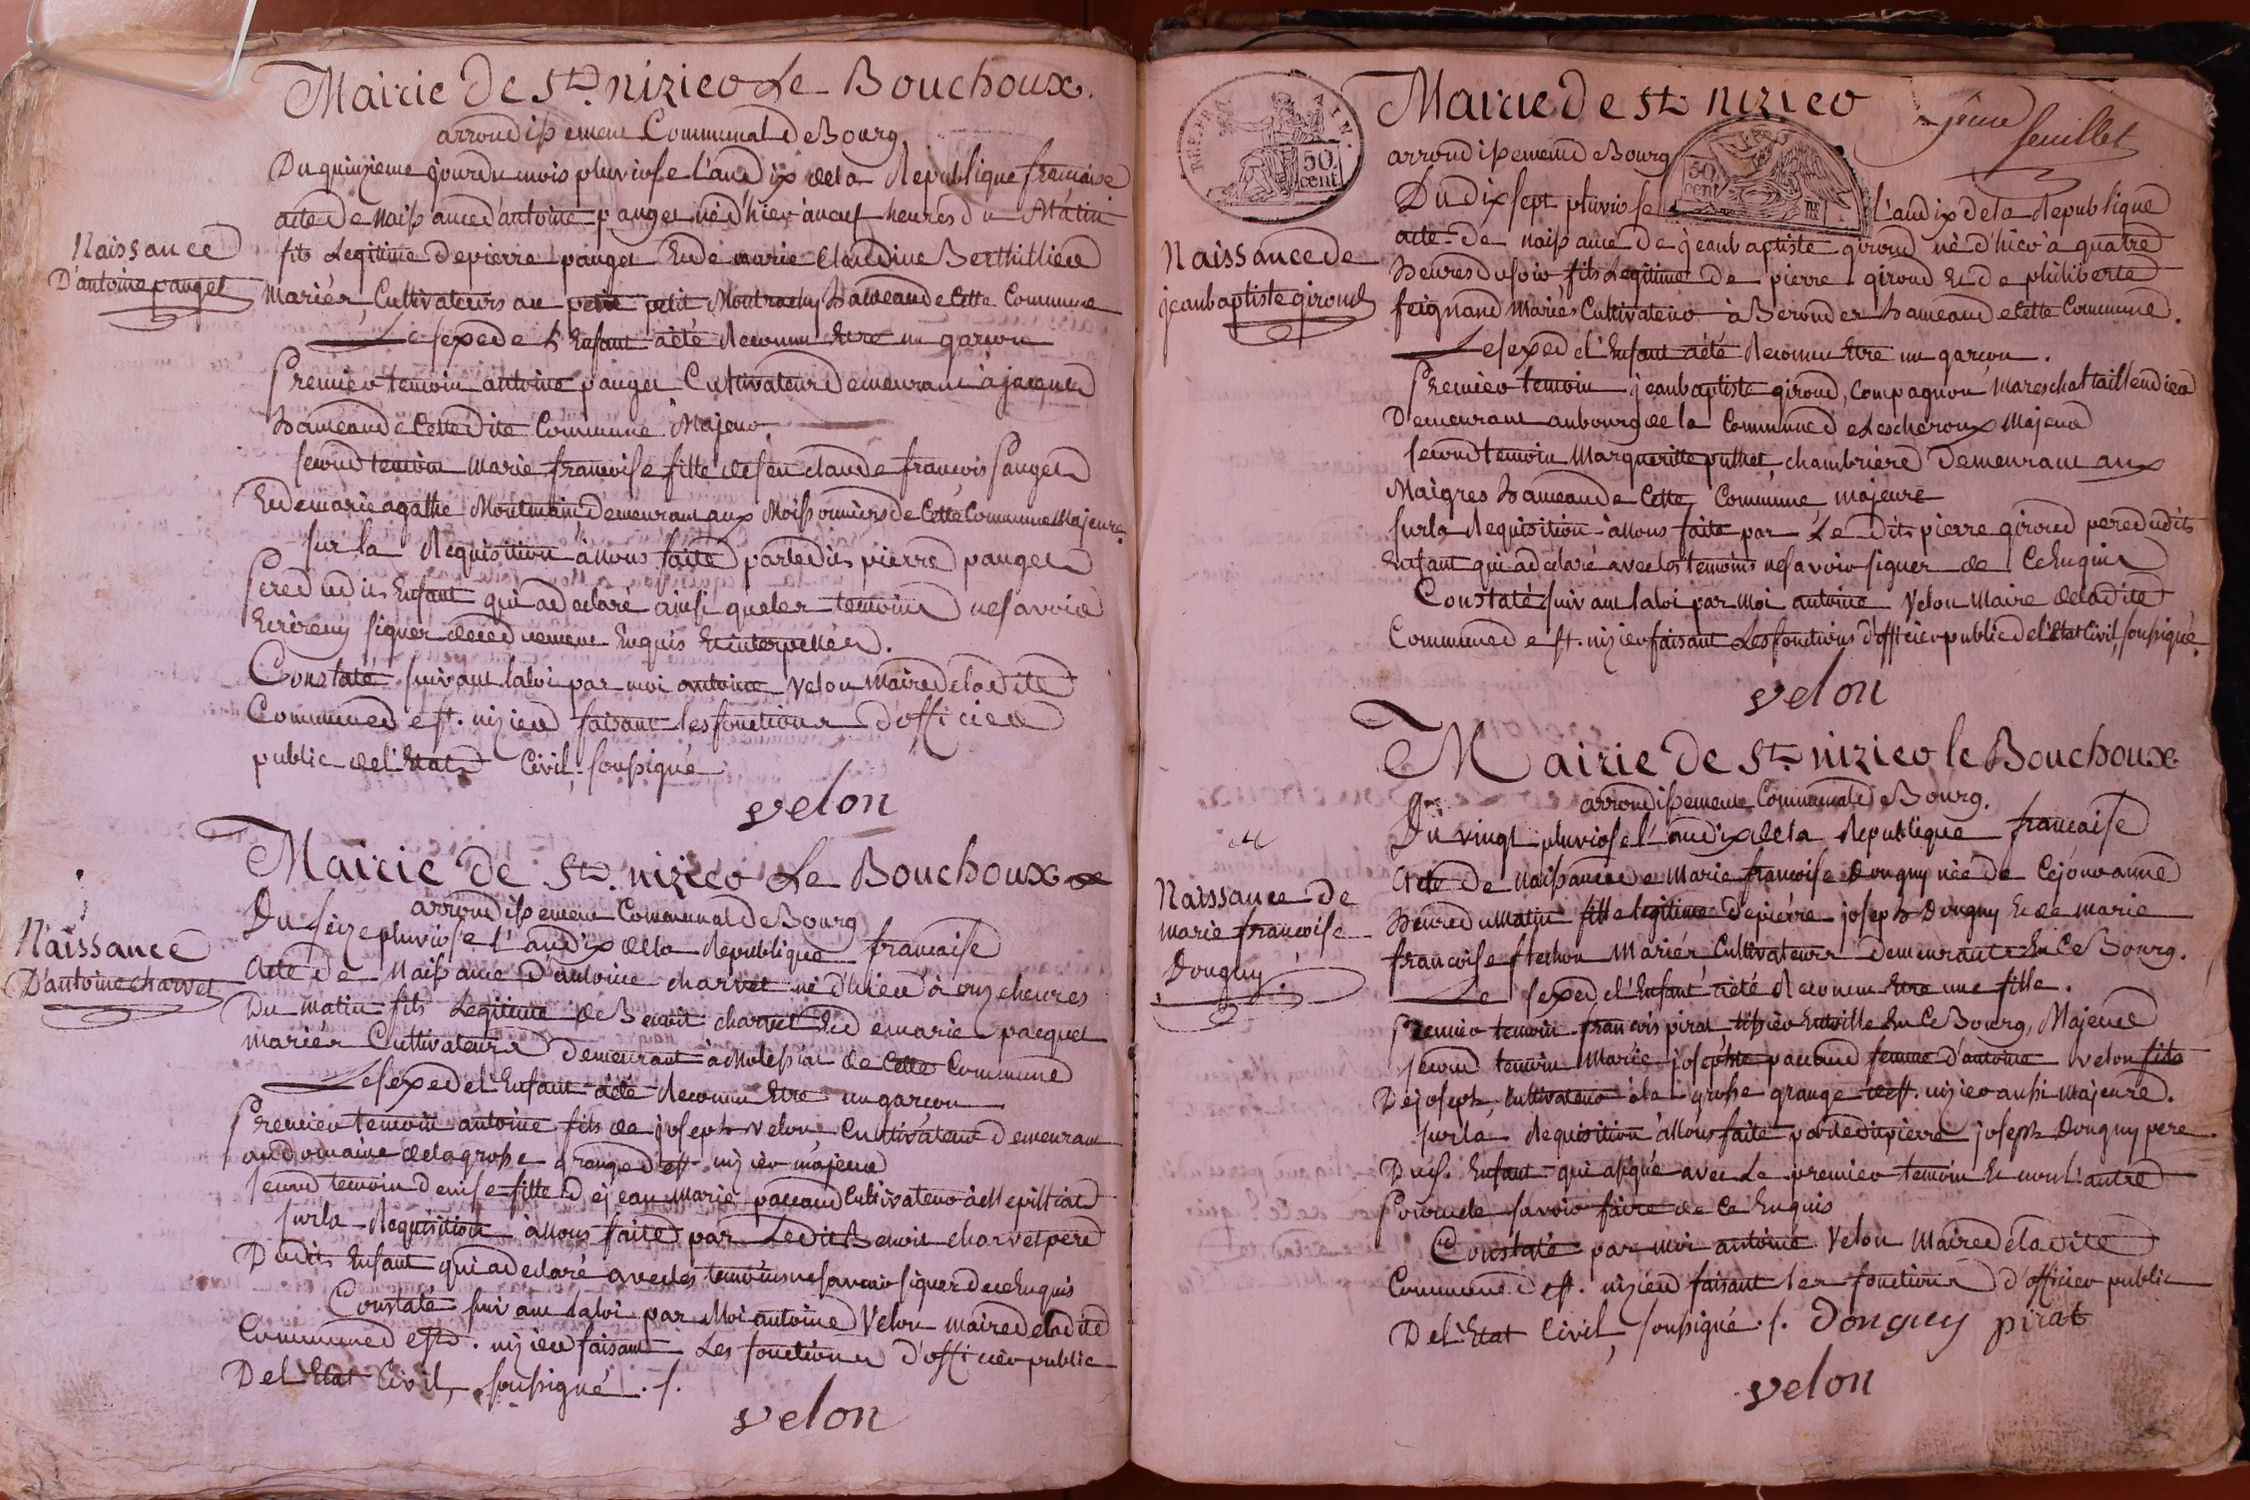 Mairie De St. nizier Le Bouchoux.
arrondissement Communal De Bourg
Du quinzieme jour du mois pluviose l'an dix de la Republique francaise
acte de Naissance d'antoine pauget né d'hier à neuf heures du Matin
Naissance
D'antoine pauget
fils Legitime de pierre pauget Et de marie Claudine Berthillier
mariés, Cultivateurs au petit Hameau de Cette Commune
Le sexe de L'Enfant à été Reconnu Etre un garcon
Premier temoin antoine pauget Cultivateur Demeurant à
hameau de Cette dite Commune Majeur
second temoin Marie francoise fille de feu claude francois Pauget
Et de marie agathe Montmain, demeurant aux Moissonniers de Cette Commune Majeure.
sur la Requisition à Nous faite par le dit pierre pauget
Pere du dit Enfant qui a declaré ainsi que les temoins ne savoir
Ecrire ny signer de ce duement Enquis Et interpellés.
Constaté suivant la loi par moi antoine Velon Maire de la dite
Commune de st. nizier faisant les fonctions D'officier
public de l'Etat Civil, soussigné
velon
Mairie de St. nizier Le Bouchoux
arrondissement Communal de Bourg
Du seize pluviose l'an dix de la Republique francaise
Naissance
D'antoine charvet
acte de Naissance D'antoine charvet né d'hier à onze heures
Du matin fils Legitime de Benoit charvet Et de marie pacquet
mariés Cultivateurs Demeurant à de Cette Commune
Le sexe de l'Enfant à été Reconnu Etre un garcon
Premier temoin antoine fils de joseph velon, Cultivateur Demeurant
au domaine de la grosse grange de st. nizier majeur
second temoin denise fille de jean Marie pacaud Cultivateur à
sur la Requisition à Nous faite par Le dit Benoit charvet pere
Du dit Enfant qui a declaré avec les temoins ne savoir signer de ce Enquis
Constaté suivant la loi par Moi antoine Velon maire de la dite
Commune de st. nizier faisant Les fonctions D'officier public
De l'Etat Civil, soussigné ./.
velon
Mairie De St nizier
feuillet
arrondissement de Bourg
PREFRE
AIN.
50
cent
50
cent
Du dix sept pluviose l'an dix de la Republique
Naissance de
jean baptiste giroud
acte de naissance de jean baptiste giroud né d'hier à quatre
heures du soir, fils Legitime de pierre giroud Et de philiberte
feignand Mariés Cultivateurs à Beronder hameau de Cette Commune.
Le sexe de l'Enfant à été Reconnu Etre un garcon.
Premier temoin jean baptiste giroud, Compagnon mareschal taillendier
Demeurant au bourg de la Commune de Lescheroux Majeur
second temoin Margueritte puthet, chambriere Demeurant aux
Maigres hameau de Cette Commune majeure
sur la Requisition à Nous faite par Le dit pierre giroud pere du dit
Enfant qui a declaré avec les temoins ne savoir signer de Ce Enquis
Constaté suivant la loi par moi antoine Velon Maire de la dite
Commune de st. nizier faisant Les fonctions d'officier public de l'Etat Civil, soussigné.
velon
Mairie De St. nizier le Bouchoux
arrondissement Communal de Bourg.
Du vingt pluviose l'an dix de la Republique francaise
Naissance De
marie francoise
Donguy
Acte de Naissance de Marie francoise Donguy née de Ce jour a une
heure du matin fille legitime de pierre joseph Donguy Et de marie
francoise Mariés Cultivateurs Demeurants En Ce Bourg.
Le sexe de l'Enfant à été Reconnu Etre une fille.
Premier temoin francois pirat tissier En toille En Ce Bourg, Majeur
second temoin Marie josephte pacaud femme d'antoine velon fils
De joseph, Cultivateur à la grosse grange de st. nizier aussi Majeure.
sur la Requisition à Nous faite par le dit pierre joseph Donguy pere
Du dit Enfant qui a signé avec Le premier temoin Et non l'autre
Pour ne le savoir faire de Ce Enquis
Constaté par moi antoine Velon Maire de la dite
Commune de st. nizier faisant les fonctions d'officier public
De l'Etat Civil, soussigné ./. Donguy pirat
velon